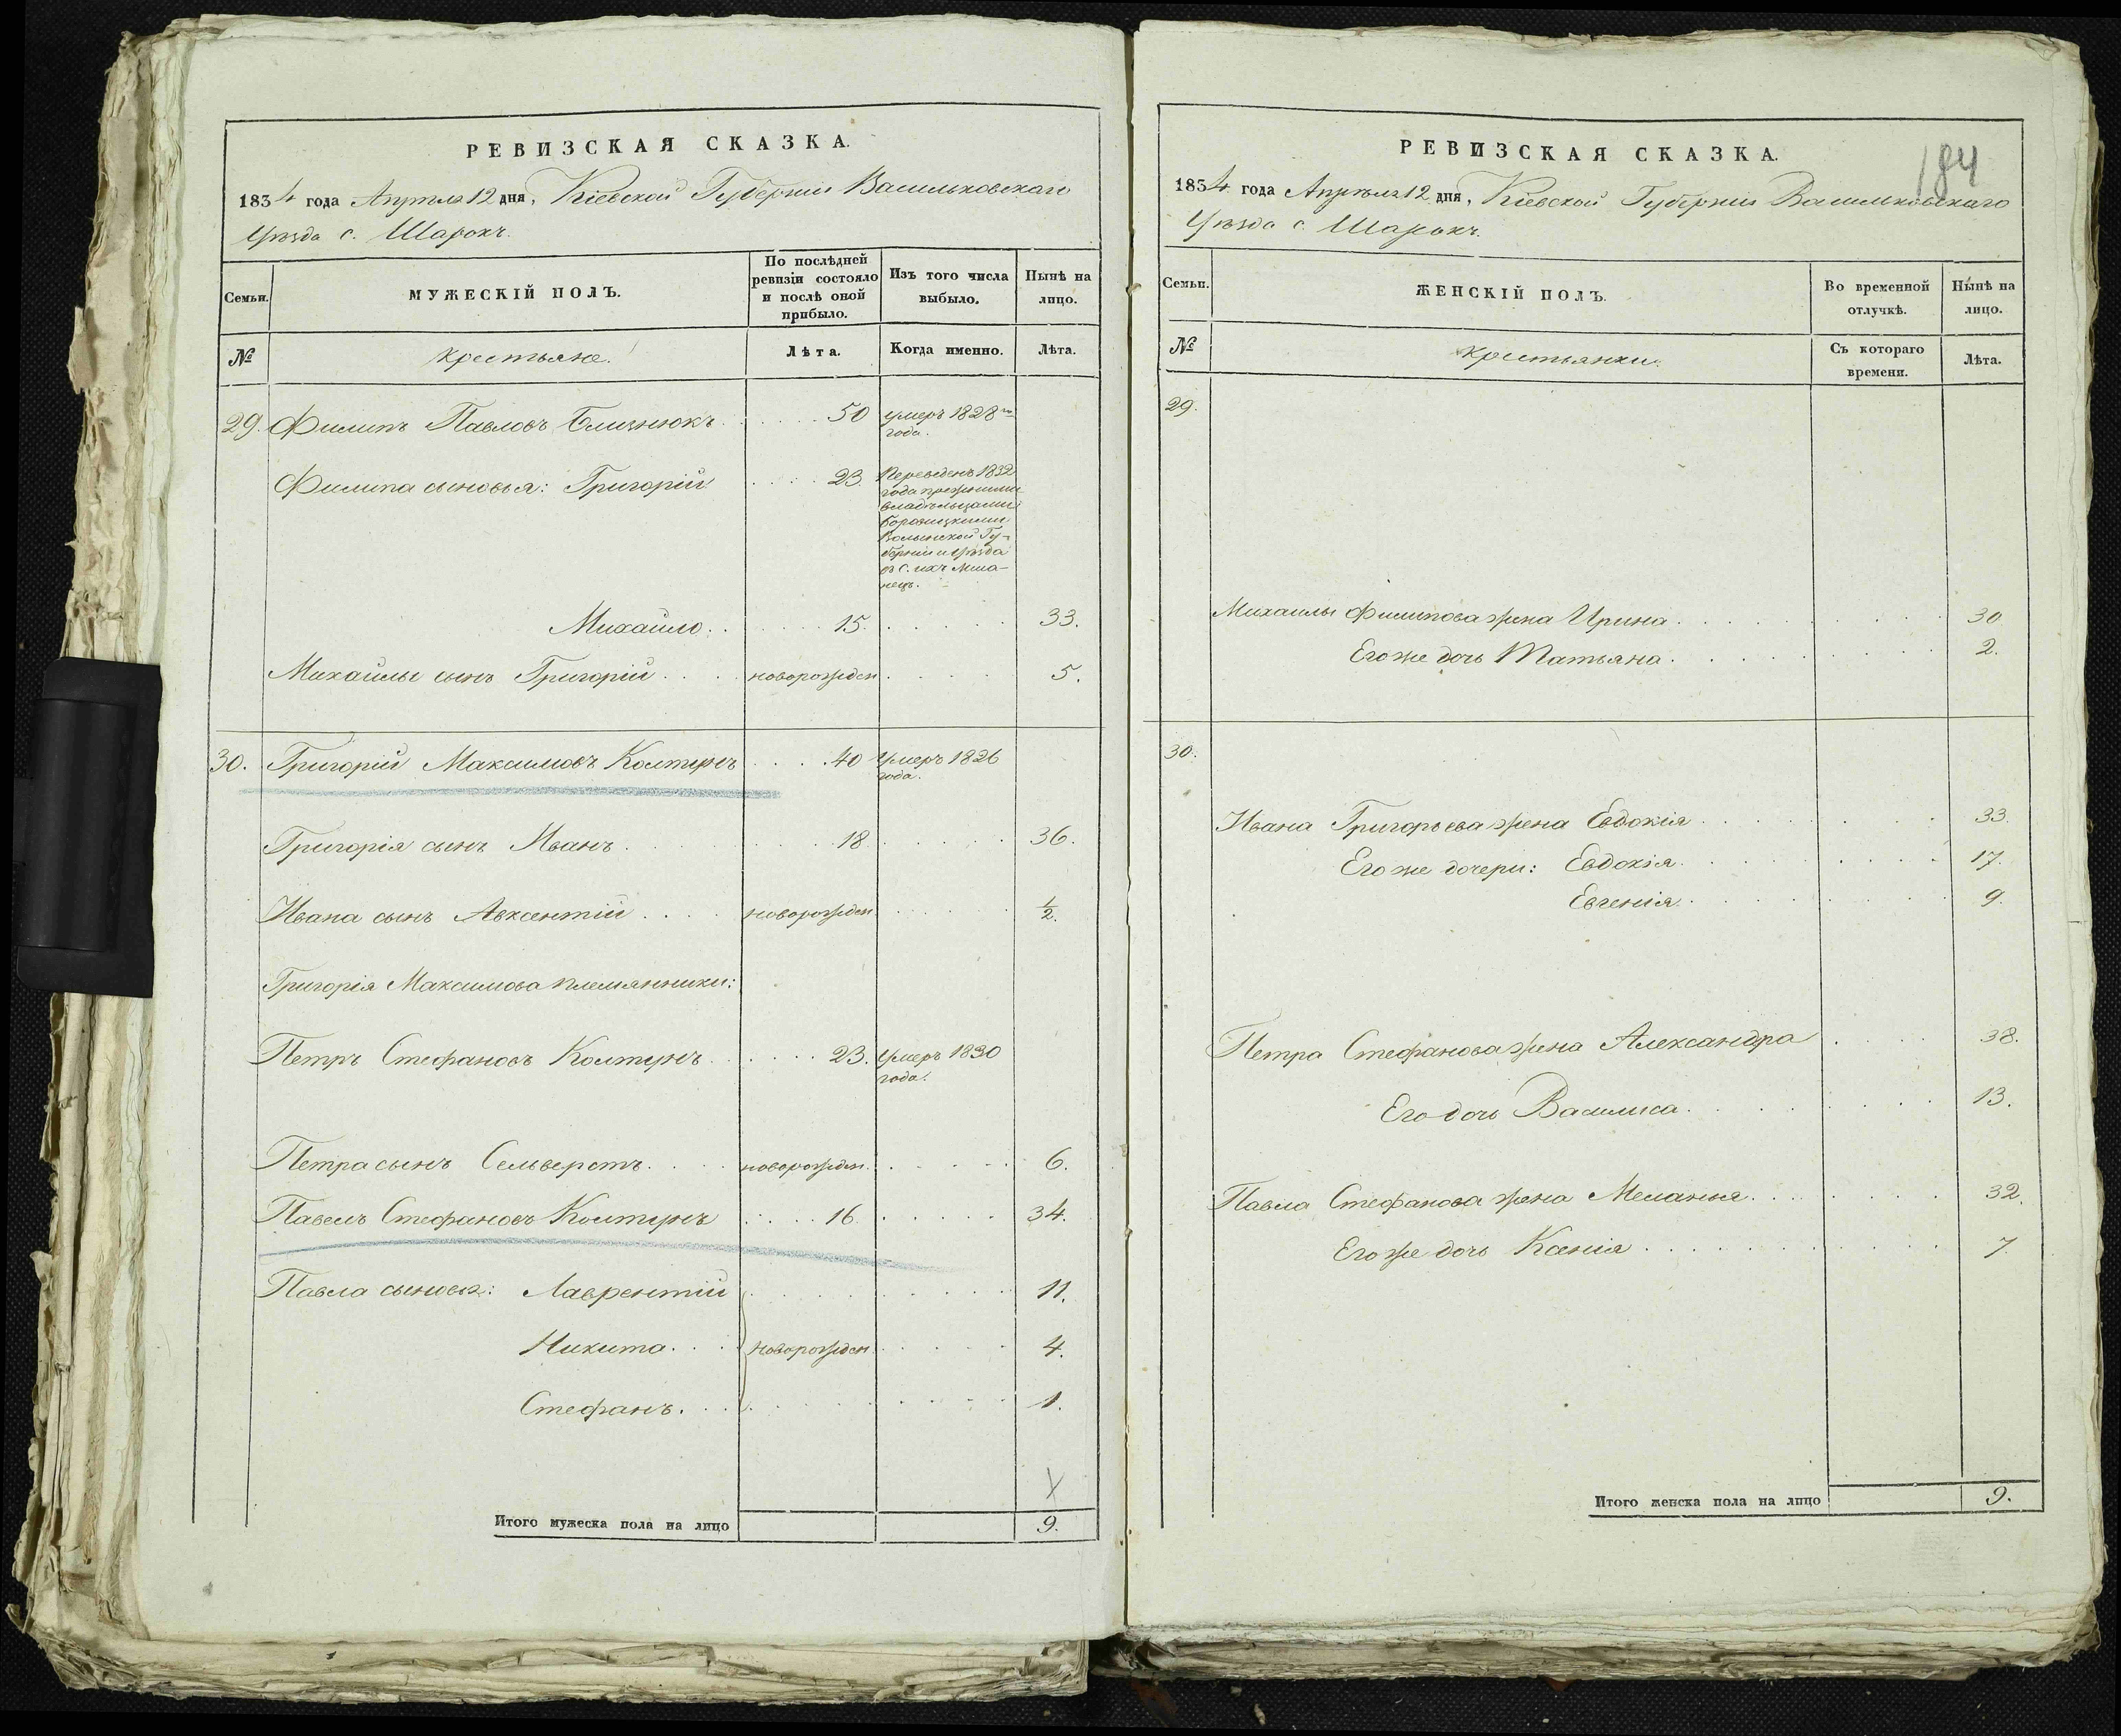 РЕВИЗСКАЯ СКАЗКА.
1834 года Апрѣля 12 дня, Кіевской Губерніи Васильковскаго
Уѣзда с. Шарокъ.
Семьи.
МУЖЕСКІЙ ПОЛЪ.
По послѣдней
ревизіи состояло
и послѣ оной
прибыло.
Изъ того числа
выбыло.
Нынѣ на
лицо.
№
крестьяне.
Лѣта.
Когда именно.
Лѣта.
29. Филипъ Павловъ Близнюкъ 50 умеръ 1828го
года.
Филипа сыновья: Григорій 23. Переведенъ 1832
года прежними
владѣльцами
Волынской Гу-
берніи и Уѣзда
въ с. ихъ Миша-
нецъ.
Михайло. 15. 33.
Михайлы сынъ Григорій новорожден 5.
30. Григорій Максимовъ Колтунъ 40 Умеръ 1826
года.
Григорія сынъ Иванъ 18 36.
Ивана сынъ Авксентій новорожден 1/2.
Григорія Максимова племянники:
Петръ Стефановъ Колтунъ 23. Умеръ 1830
года.
Петра сынъ Сельверстъ. новорожден. 6.
Павелъ Стефановъ Колтунъ 16 34.
Павла сыновья: Лаврентій 11.
Никита новорожден 4.
Стефанъ. 1.
Итого мужеска пола на лицо 9.
184
РЕВИЗСКАЯ СКАЗКА.
1834 года Апрѣля 12 дня, Кіевской Губерніи Васильковскаго
Уѣзда с. Шарокъ.
Семьи.
ЖЕНСКІЙ ПОЛЪ.
Во временной
отлучкѣ.
Нынѣ на
лицо.
№
крестьянки.
Съ котораго
времени.
Лѣта.
29.
Михаилы Филипова жена Ирина 30
Его же дочь Татьяна. 2.
30.
Ивана Григорьева жена Евдокія 33.
Его же дочери: Евдокія. 17.
Евгенія. 9.
Петра Стефанова жена Александра 38.
Его дочь Василиса. 13.
Павла Стефанова жена Меланья. 32.
Его же дочь Ксенія 7.
Итого женска пола на лицо 9.